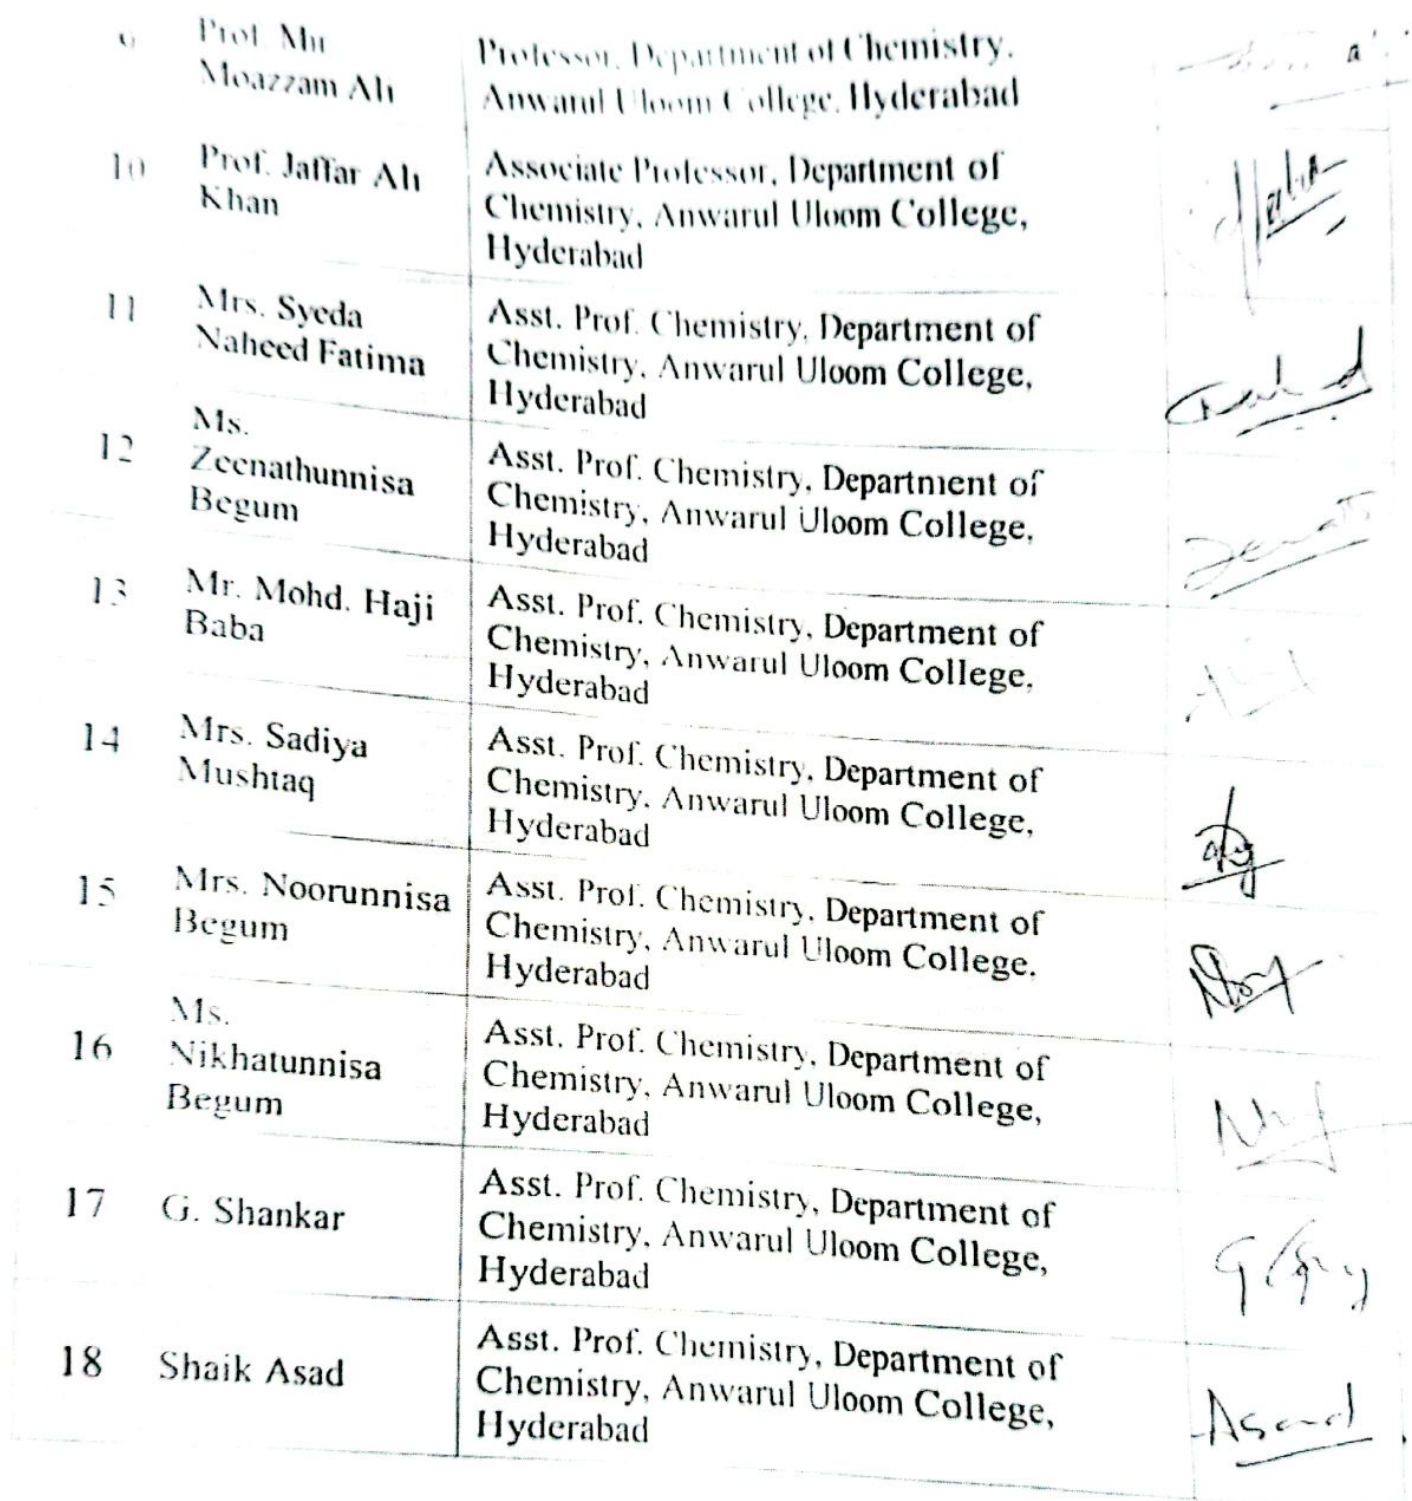 9
Prof. Mir
Moazzam Ali
Professor, Department of Chemistry,
Anwarul Uloom College, Hyderabad
10
Prof. Jaffar Ali
Khan
Associate Professor, Department of
Chemistry, Anwarul Uloom College,
Hyderabad
11
Mrs. Syeda
Naheed Fatima
Asst. Prof. Chemistry, Department of
Chemistry, Anwarul Uloom College,
Hyderabad
12
Ms.
Zeenathunnisa
Begum
Asst. Prof. Chemistry, Department of
Chemistry, Anwarul Uloom College,
Hyderabad
13
Mr. Mohd. Haji
Baba
Asst. Prof. Chemistry, Department of
Chemistry, Anwarul Uloom College,
Hyderabad
14
Mrs. Sadiya
Mushtaq
Asst. Prof. Chemistry, Department of
Chemistry, Anwarul Uloom College,
Hyderabad
15
Mrs. Noorunnisa
Begum
Asst. Prof. Chemistry, Department of
Chemistry, Anwarul Uloom College,
Hyderabad
16
Ms.
Nikhatunnisa
Begum
Asst. Prof. Chemistry, Department of
Chemistry, Anwarul Uloom College,
Hyderabad
17
G. Shankar
Asst. Prof. Chemistry, Department of
Chemistry, Anwarul Uloom College,
Hyderabad
18
Shaik Asad
Asst. Prof. Chemistry, Department of
Chemistry, Anwarul Uloom College,
Hyderabad
Asad